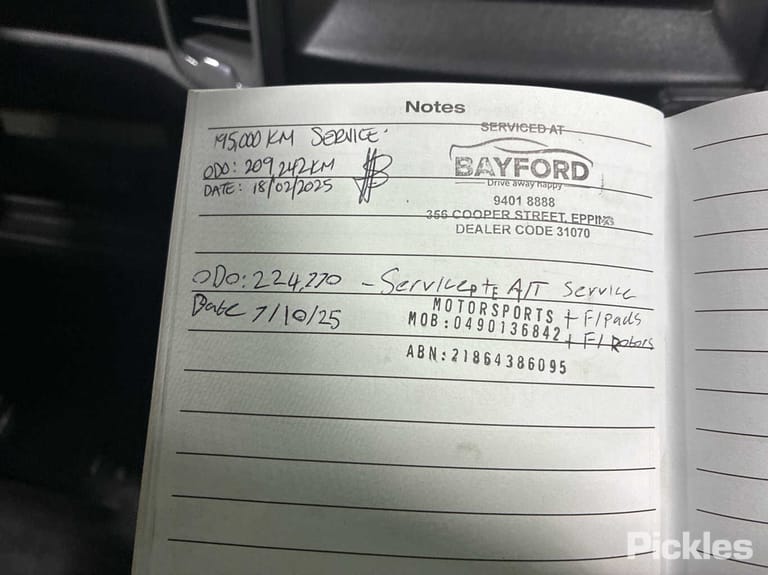 Notes
195,000 KM SERVICE.
ODO: 209,242KM
DATE: 18/02/2025
SERVICED AT
BAYFORD
Drive away happy
9401 8888
356 COOPER STREET, EPPING
DEALER CODE 31070
ODO: 224,270 - Service A/T Service
Date 7/10/25
MOTORSPORTS + F/Pads
MOB:0490136842 + F/Rotors
ABN:21864386095
Pickles